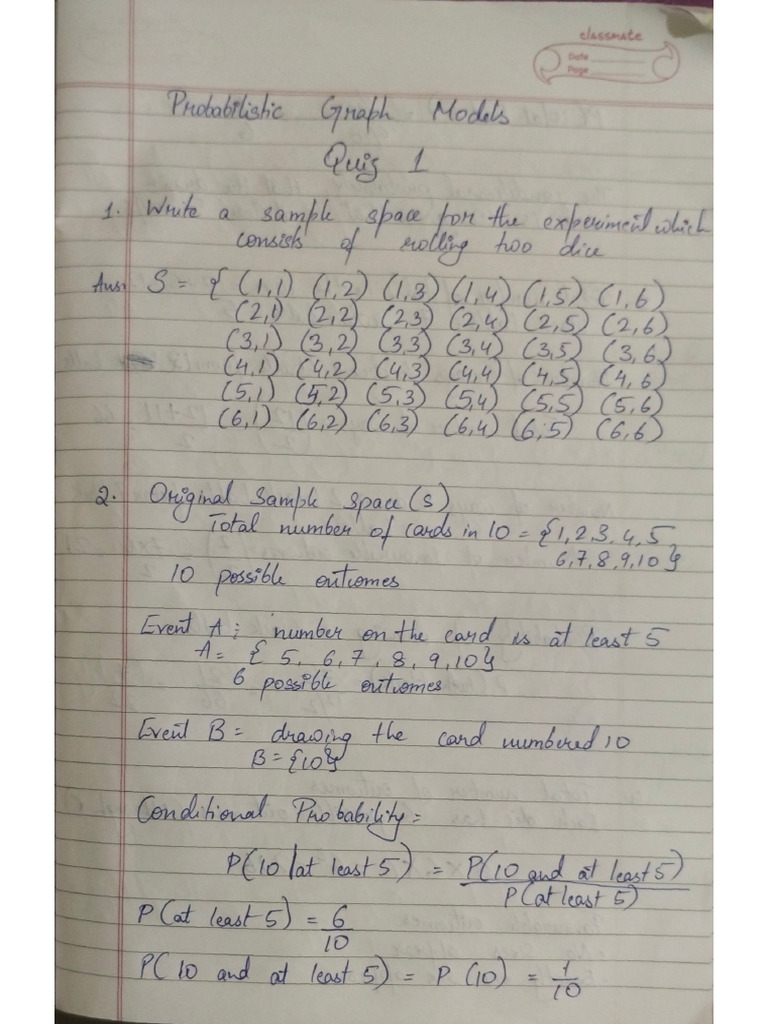 classmate
Date
Page
Probabilistic Graph Models
Quiz 1
1. Write a sample space for the experiment which
consists of rolling two dice
Ans: S = { (1,1) (1,2) (1,3) (1,4) (1,5) (1,6)
(2,1) (2,2) (2,3) (2,4) (2,5) (2,6)
(3,1) (3,2) (3,3) (3,4) (3,5) (3,6)
(4,1) (4,2) (4,3) (4,4) (4,5) (4,6)
(5,1) (5,2) (5,3) (5,4) (5,5) (5,6)
(6,1) (6,2) (6,3) (6,4) (6,5) (6,6)
2. Original Sample Space (S)
Total number of cards in 10 = {1,2,3,4,5
6,7,8,9,10}
10 possible outcomes
Event A: number on the card is at least 5
A = { 5, 6, 7, 8, 9, 10}
6 possible outcomes
Event B = drawing the card numbered 10
B = {10}
Conditional Probability =
P(10 | at least 5) = P(10 and at least 5)
P(at least 5)
P(at least 5) = 6
10
P(10 and at least 5) = P(10) = 1
10